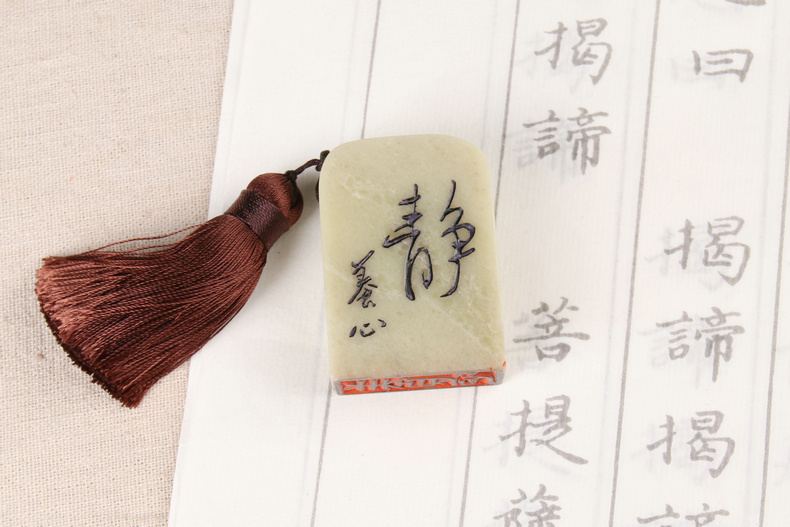 静
養心
曰 揭諦揭諦
揭諦 菩提薩